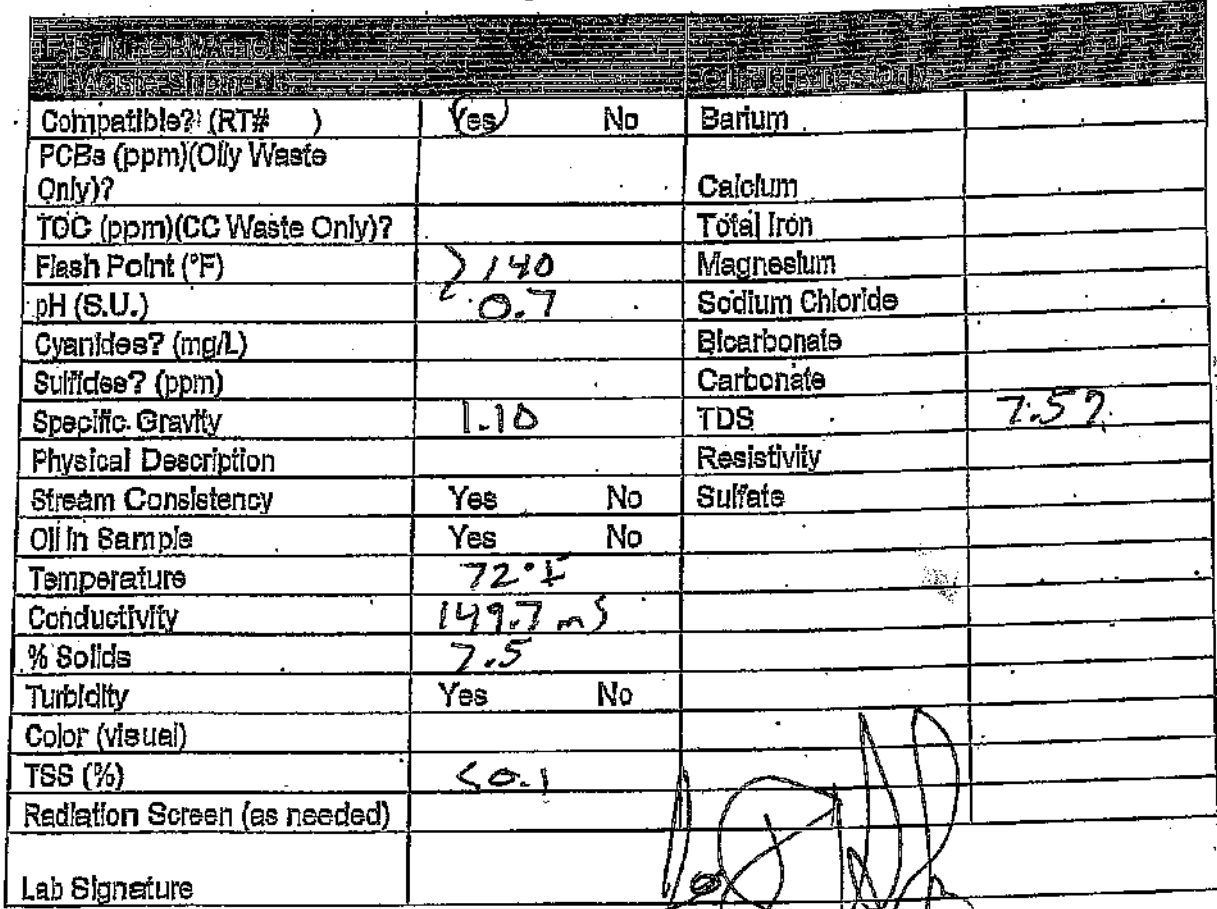 LAB INFORMATION
All Waste Shipments
Compatible? (RT# ) Yes No Barium
PCBs (ppm)(Oily Waste
Only)? Calcium
TOC (ppm)(CC Waste Only)? Total Iron
Flash Point (°F) >140 Magnesium
pH (S.U.) 0.7 Sodium Chloride
Cyanides? (mg/L) Bicarbonate
Sulfides? (ppm) Carbonate
Specific Gravity 1.10 TDS
Physical Description Resistivity
Stream Consistency Yes No Sulfate
Oil in Sample Yes No
Temperature 72°F
Conductivity 149.7 mS
% Solids 7.5
Turbidity Yes No
Color (visual)
TSS (%) <0.1
Radiation Screen (as needed)
Lab Signature